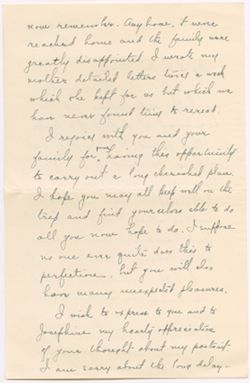 now remember. Anyhow, it never
reached home and the family were
greatly disappointed. I wrote my
mother detailed letters twice a week
which she kept for us but which we
have never found time to reread.
I rejoice with you and your
family for your having this opportunity
to carry out a long cherished plan.
I hope you may all keep well on the
trip and find yourselves able to do
all you now hope to do. I suppose
no one ever quite does this to
perfection, but you will also
have many unexpected pleasures.
I wish to express to you and to
Josephine my hearty appreciation
of your thought about my portrait.
I am sorry about the long delay-